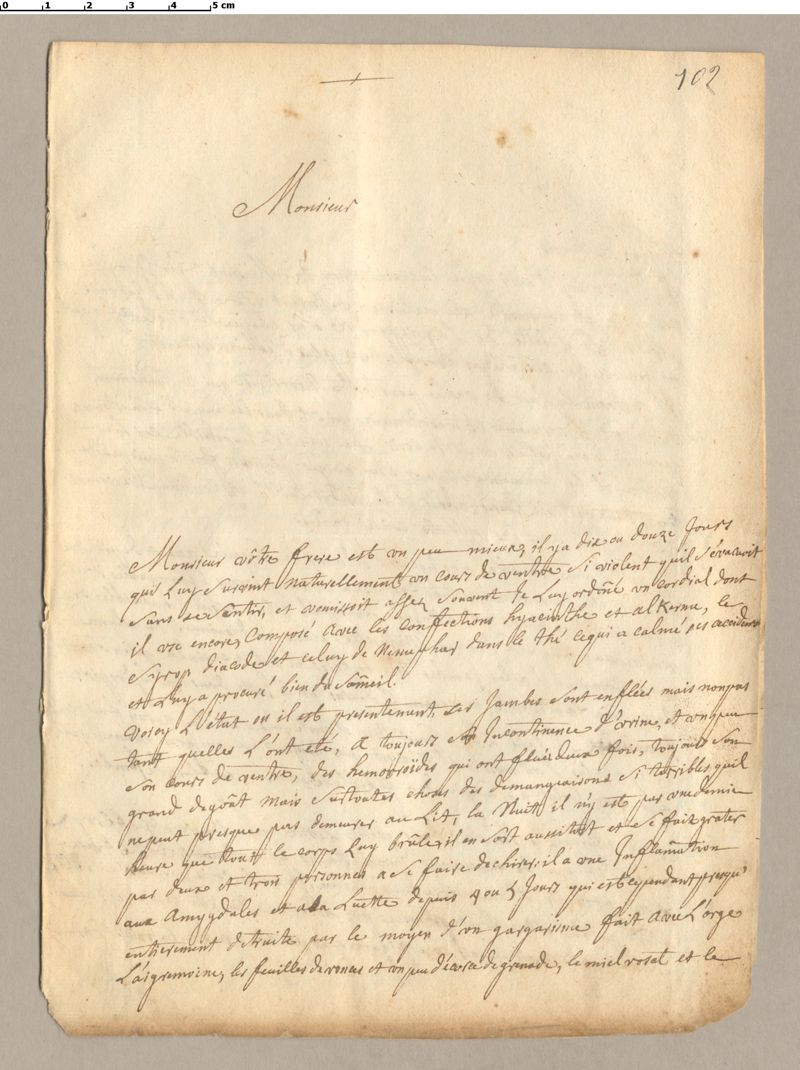 0 1 2 3 4 5 cm
102
Monsieur
Monsieur vôtre frere est un peu mieux, il y a dix ou douze Jours
qu'il Luy Survint naturellement un cours de ventre Si violent quil S'évacuoit
Sans se Sentir, et vomissoit assez Souvent Je Luy ordoñé un Cordial dont
il use encore, Composé avec les Confections hyacinthe et alKerme, le
Syrop diacode et celuy de Nenuphar dans le thé ce qui a calmé ses accidens
et Luy a procuré bien du Sōmeil.
Voicy L'état ou il est presentement, ses Jambes Sont enflées mais non pas
tant quelles L'ont eté, a toujours Son Incontinence d'urine, et un peu
Son Cours de ventre, des hemorroïdes qui ont flué deux fois, toujours Son
grand degoût mais Surtoutes choses des demangeaisons Si terribles quil
ne peut presque pas demeurer au Lit, la Nuit il n'y est pas une demie
heure que tout le corps Luy brûle, il en Sort aussitôt et Se fait grater
par deux et trois personnes a Se faire dechirer, il a une Inflam̄ation
aux Amygdales et a la Luette depuis 4 ou 5 Jours qui est cependant presqu'
entierement detruite par le moyen d'un gargarisme fait avec L'orge
L'aigremoine, les feuilles de ronces et un peu d'écorce de grenade, le miel rosat et le